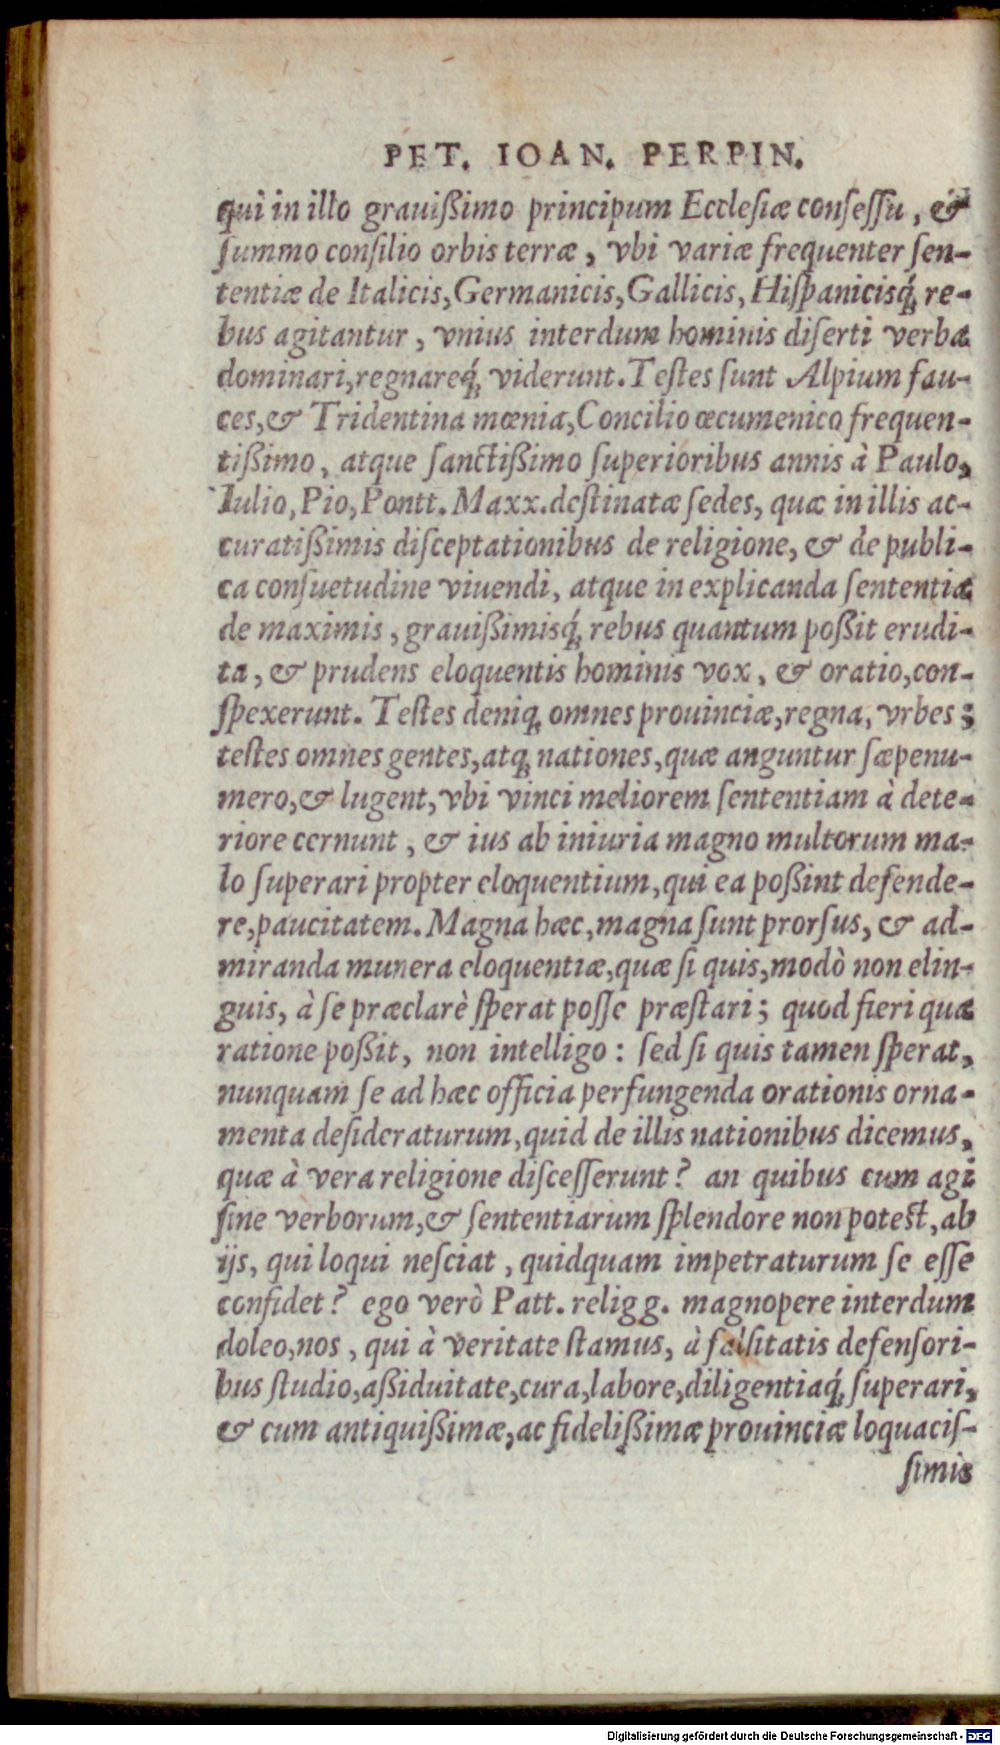 PET. IOAN. PERPIN.
qui in illo grauißimo principum Ecclesiæ conseſſu, &
ſummo conſilio orbis terræ, vbi variæ frequenter ſen-
tentiæ de Italicis, Germanicis, Gallicis, Hiſpanicisq́; re-
bus agitantur, vnius interdum hominis diſerti verba
dominari, regnareq́; viderunt. Teſtes ſunt Alpium fau-
ces, & Tridentina mœnia, Concilio œcumenico frequen-
tißimo, atque ſanctißimo ſuperioribus annis à Paulo,
Iulio, Pio, Pontt. Maxx. deſtinatæ ſedes, quæ in illis ac-
curatißimis diſceptationibus de religione, & de publi-
ca conſuetudine viuendi, atque in explicanda ſententia
de maximis, grauißimisq́; rebus quantum poßit erudi-
ta, & prudens eloquentis hominis vox, & oratio, con-
ſpexerunt. Teſtes deniq; omnes prouinciæ, regna, vrbes;
teſtes omnes gentes, atq; nationes, quæ anguntur ſæpenu-
mero, & lugent, vbi vinci meliorem ſententiam à dete-
riore cernunt, & ius ab iniuria magno multorum ma-
lo ſuperari propter eloquentium, qui ea poßint defende-
re, paucitatem. Magna hæc, magna ſunt prorſus, & ad-
miranda munera eloquentiæ, quæ ſi quis, modò non elin-
guis, à ſe præclarè ſperat poſſe præſtari; quod fieri qua
ratione poßit, non intelligo: ſed ſi quis tamen ſperat,
nunquam ſe ad hæc officia perfungenda orationis orna-
menta deſideraturum, quid de illis nationibus dicemus,
quæ à vera religione diſceſſerunt? an quibus cum agi
ſine verborum, & ſententiarum ſplendore non poteſt, ab
ijs, qui loqui neſciat, quidquam impetraturum ſe eſſe
confidet? ego verò Patt. religg. magnopere interdum
doleo, nos, qui à veritate ſtamus, à falſitatis defenſori-
bus ſtudio, aßiduitate, cura, labore, diligentiaq́; ſuperari,
& cum antiquißimæ, ac fidelißimæ prouinciæ loquaciſ-
ſimis
Digitalisierung gefördert durch die Deutsche Forschungsgemeinschaft - DFG